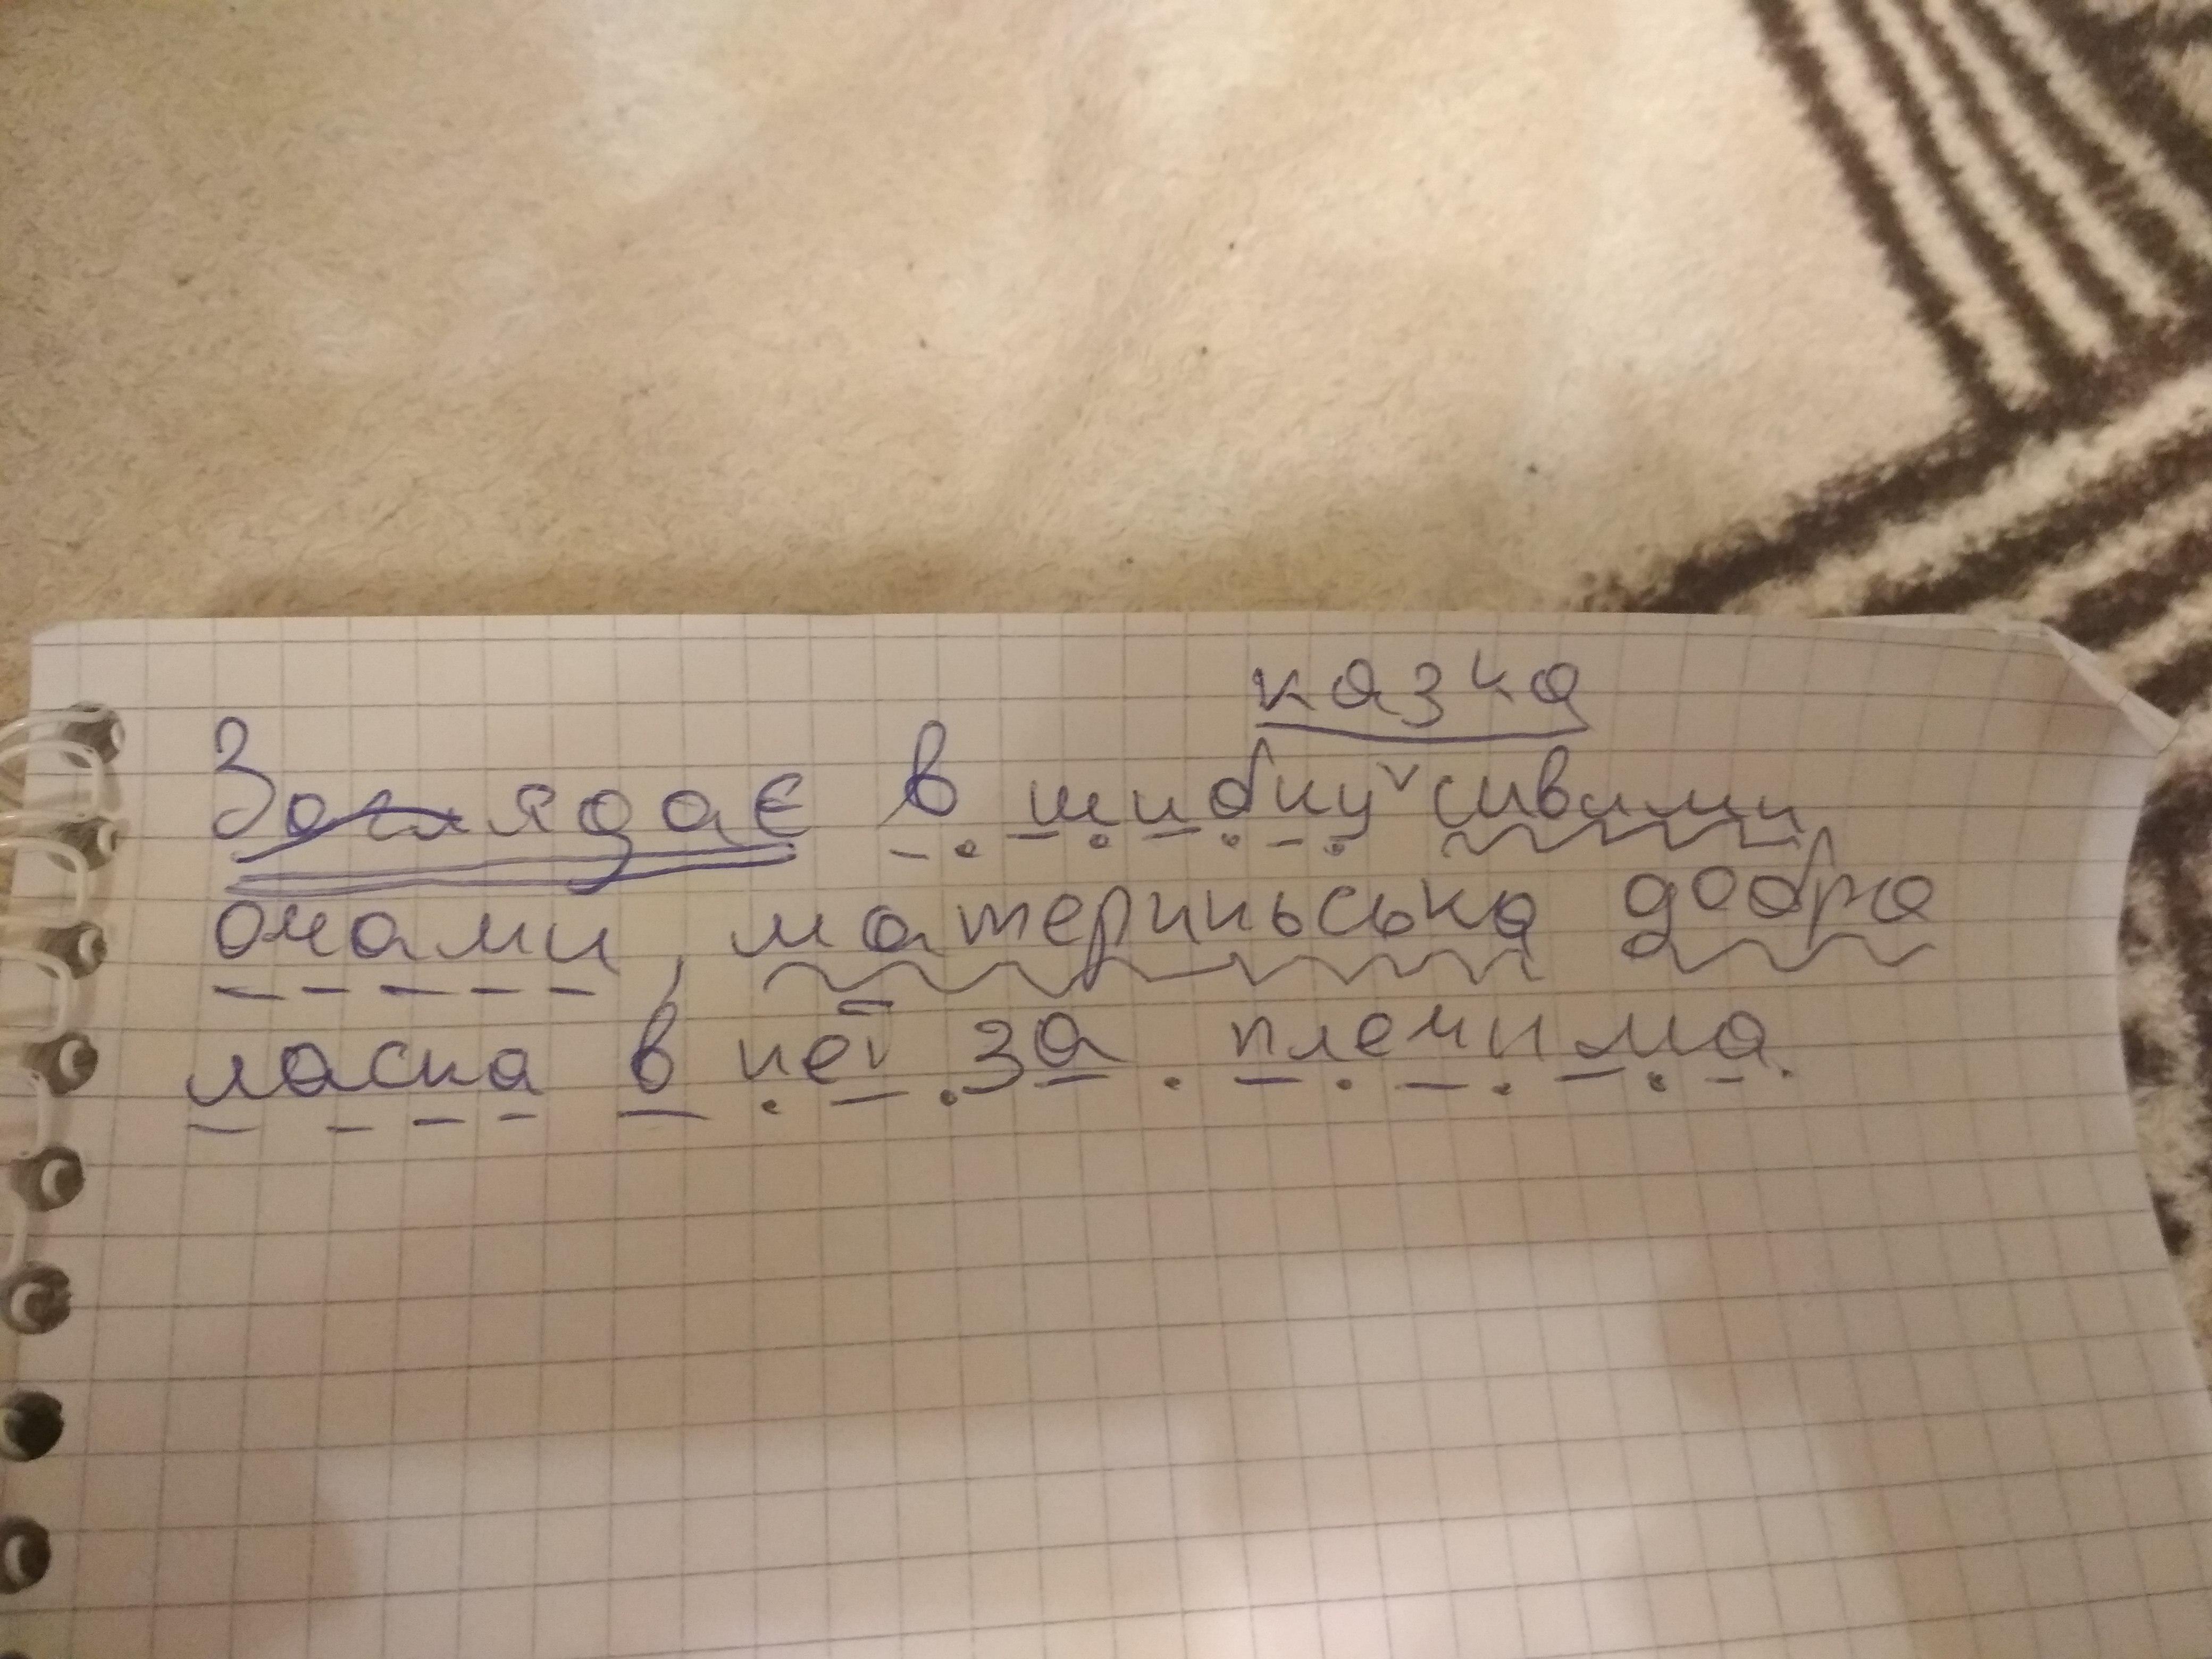 казка
Заглядає в шибку сивими
очами, материнська добра
ласка в неї за плечима.